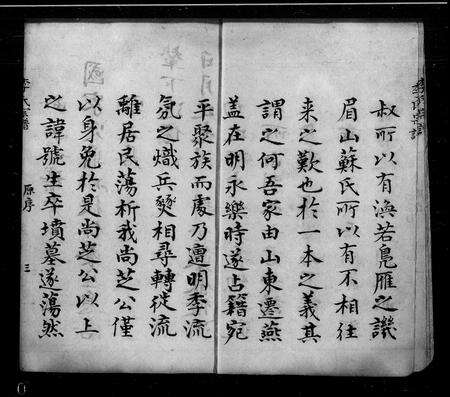 叔所以有渙若鳧雁之譏
眉山蘇氏所以有不相往
来之歎也於一本之義其
謂之何吾家由山東遷燕
蓋在明永樂時遂占籍宛
平聚族而處乃遭明季流
氛之熾兵燹相尋轉徙流
離居民蕩析我尚芝公僅
以身免於是尚芝公以上
之諱號生卒墳墓遂蕩然
原序
三